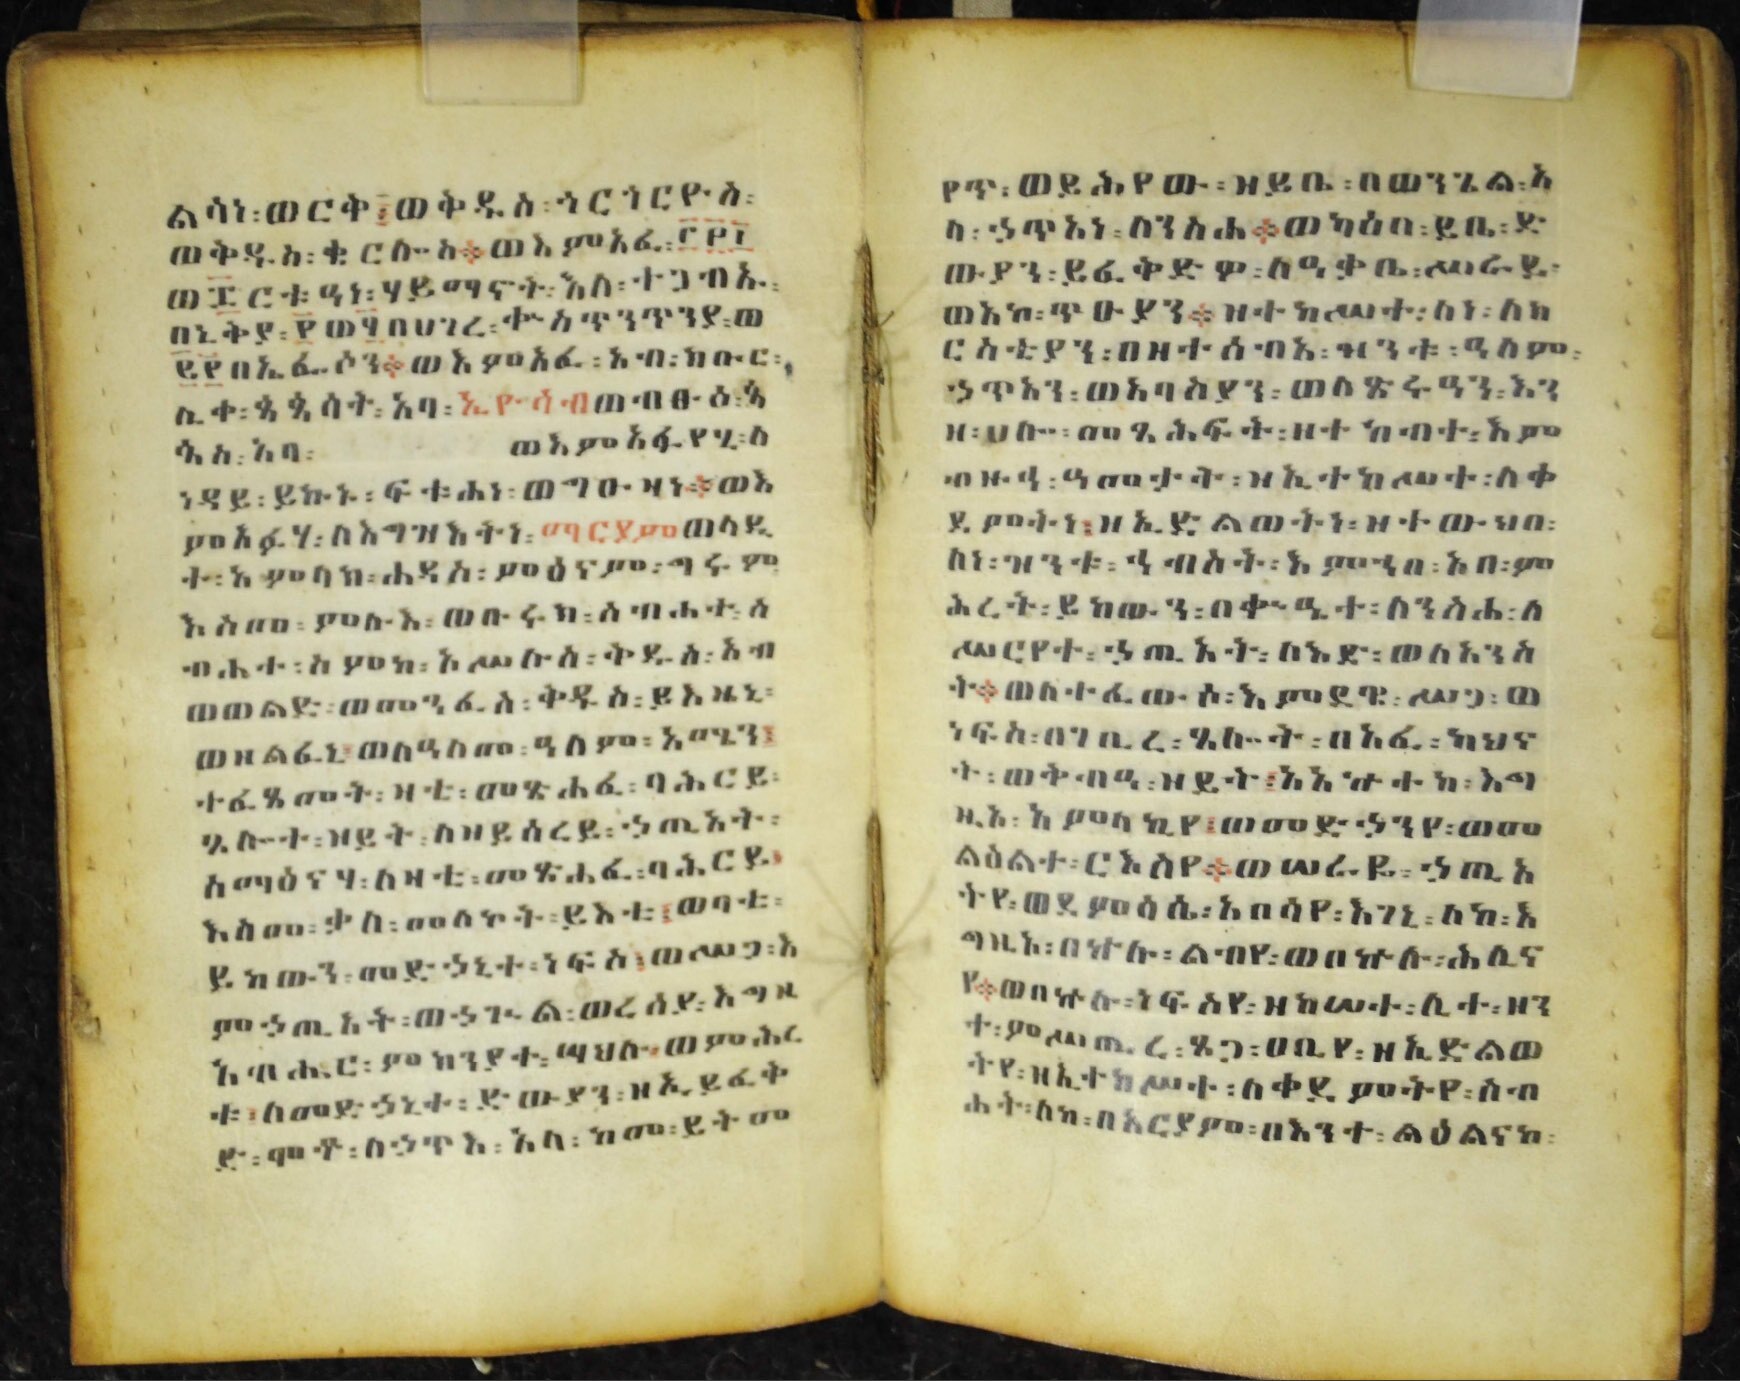 ልሳነ፡ወርቅ፡ወቅዱስ፡ጎርጎርዮስ፡
ወቅዱስ፡ቄርሎስ፡ወእምአፈ፡፫፻፲
ወ፰ርቱዓነ፡ሃይማኖት፡እለ፡ተጋብኡ፡
በኒቅያ፡፻ወ፶በሀገረ፡ቍስጥንጥንያ፡ወ
፪፻በኤፌሶን፡ወእምአፈ፡አብ፡ክቡር፡
ሊቀ፡ጳጳሳት፡አባ፡ኢዮሳብወብፁዕ፡ጳ
ጳስ፡አባ፡ ወእምአፉየሂ፡ለ
ነዳይ፡ይኩኑ፡ፍቱሐነ፡ወግዑዛነ፡ወእ
ምአፉሃ፡ለእግዝእትነ፡ማርያምወላዲ
ተ፡አምላክ፡ሐዳስ፡ምዕናም፡ግሩም
እስመ፡ምሉእ፡ወቡሩክ፡ስብሐተ፡ስ
ብሐተ፡ስምከ፡እሥሉስ፡ቅዱስ፡አብ
ወወልድ፡ወመንፈስ፡ቅዱስ፡ይእዜኒ፡
ወዘልፈኒ፡ወለዓለመ፡ዓለም፡አሜን፡
ተፈጸመት፡ዛቲ፡መጽሐፈ፡ባሕርይ፡
ጸሎት፡ዛይት፡ለዘይሰረይ፡ኃጢአት፡
አማዕናሃ፡ለዛቲ፡መጽሐፈ፡ባሕርይ፡
እስመ፡ቃለ፡መለኮት፡ይእቲ፡ወባቲ፡
ይከውን፡መድኃኒተ፡ነፍስ፡ወሥጋ፡እ
ምኃጢአት፡ወኃጉል፡ወረሰያ፡እግዚ
አብሔር፡ምክንያተ፡ሣህሉ፡ወምሕረ
ቱ፡ለመድኃኒተ፡ድውያን፡ዘኢይፈቅ
ድ፡ሞቶ፡ለኃጥእ፡አላ፡ከመ፡ይትመ
የጥ፡ወይሕየው፡ዝይቤ፡በወንጌል፡አ
ለ፡ኃጥአነ፡ለንስሐ፡ወካዕበ፡ይቤ፡ድ
ውያን፡ይፈቅድዎ፡ለዓቃቤ፡ሥራይ፡
ወአኮ፡ጥዑያን፡ዝተከሥተ፡ለነ፡ለክ
ርስቲያን፡በዘተሰብአ፡ዝንቱ፡ዓለም፡
ኃጥአን፡ወአባስያን፡ወለጽሩዓን፡እን
ዘ፡ሀሎ፡መጊሕፍት፡ዘተከብተ፡እም
ብዙኅ፡ዓመታት፡ዝኢተከሥተ፡ለቀ
ዲምትነ፡ዝኢድልወትነ፡ዝተውህበ፡
ለነ፡ዝንቱ፡ኂብስት፡እምኀበ፡አበ፡ም
ሕረት፡ይከውን፡በቍዔተ፡ለንስሐ፡ለ
ሥርየተ፡ኃጢአት፡ለእድ፡ወለአንስ
ት፡ወለተፈውሶ፡እምደዌ፡ሥጋ፡ወ
ነፍስ፡በገቢረ፡ጸሎት፡በአፈ፡ካህና
ት፡ወቅብዓ፡ዝይት፡አአኵተከ፡እግ
ዚአ፡አምላኪየ፡ወመድኃንየ፡ወመ
ልዕልተ፡ርእስየ፡ወሠረይ፡ኃጢአ
ትየ፡ወደምሳሴ፡አበሳየ፡እገኒ፡ለከ፡እ
ግዚአ፡በኵሉ፡ልብየ፡ወበኵሉ፡ሕሊና
የ፡ወበኵሉ፡ነፍስየ፡ዝከሠተ፡ሊተ፡ዘን
ተ፡ምሥጢረ፡ጸጋ፡ሀቢየ፡ዝኢድልወ
ትየ፡ዝኢተከሥተ፡ለቀዲምትየ፡ስብ
ሐት፡ለከ፡በአርያም፡በእንተ፡ልዕልናከ፡